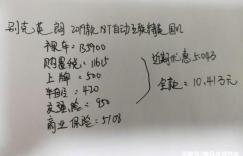 别克英朗 2019款 18T自动互联精英 国六
裸车: 135900
购置税: 11615
上牌: 500
车船税: 420
交强险: 950
商业保险: 5108
近期优惠 5.043
全款: 10.413元